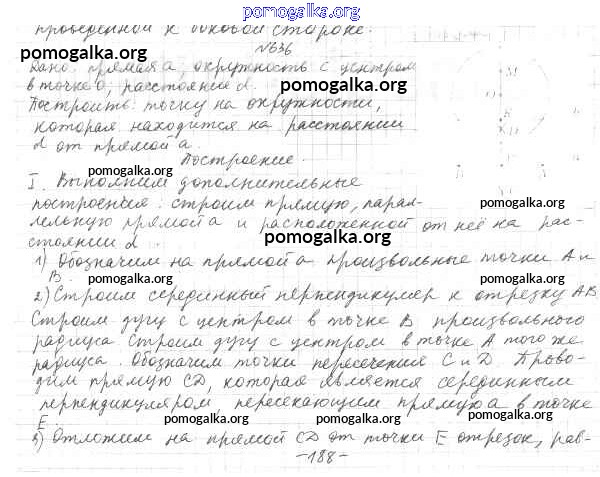 pomogalka.org
проведенной к боковой стороне.
№636
Дано: прямая a, окружность с центром
в точке O, расстояние d.
Построить: точку на окружности,
которая находится на расстоянии
d от прямой a.
Построение.
I. Выполним дополнительные
построения: строим прямую, парал-
лельную прямой a и расположенной от неё на рас-
стоянии d.
1) Обозначим на прямой a произвольные точки A и
B.
2) Строим серединный перпендикуляр к отрезку AB
Строим дугу с центром в точке B произвольного
радиуса. Строим дугу с центром в точке A того же
радиуса. Обозначим точки пересечения C и D. Прово-
дим прямую CD, которая является серединным
перпендикуляром пересекающим прямую a в точке
E.
3) Отложим на прямой CD от точки E отрезок, рав-
-188-